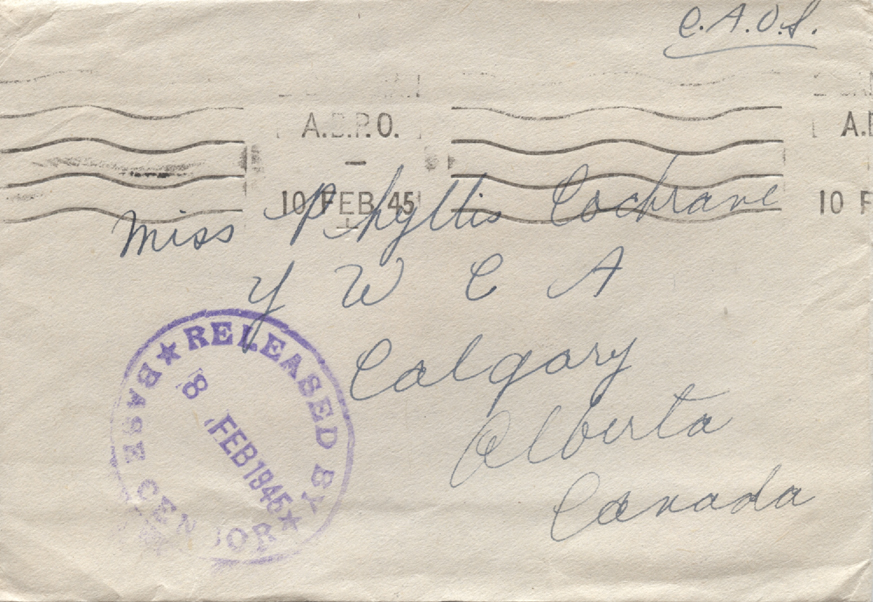 C.A.O.S.
A.B.P.O.
10 FEB 45
A.
10 F
Miss Phyllis Cochrane
Y W C A
Calgary
Alberta
Canada
RELEASED BY
BASE CENSOR
8 FEB 1945